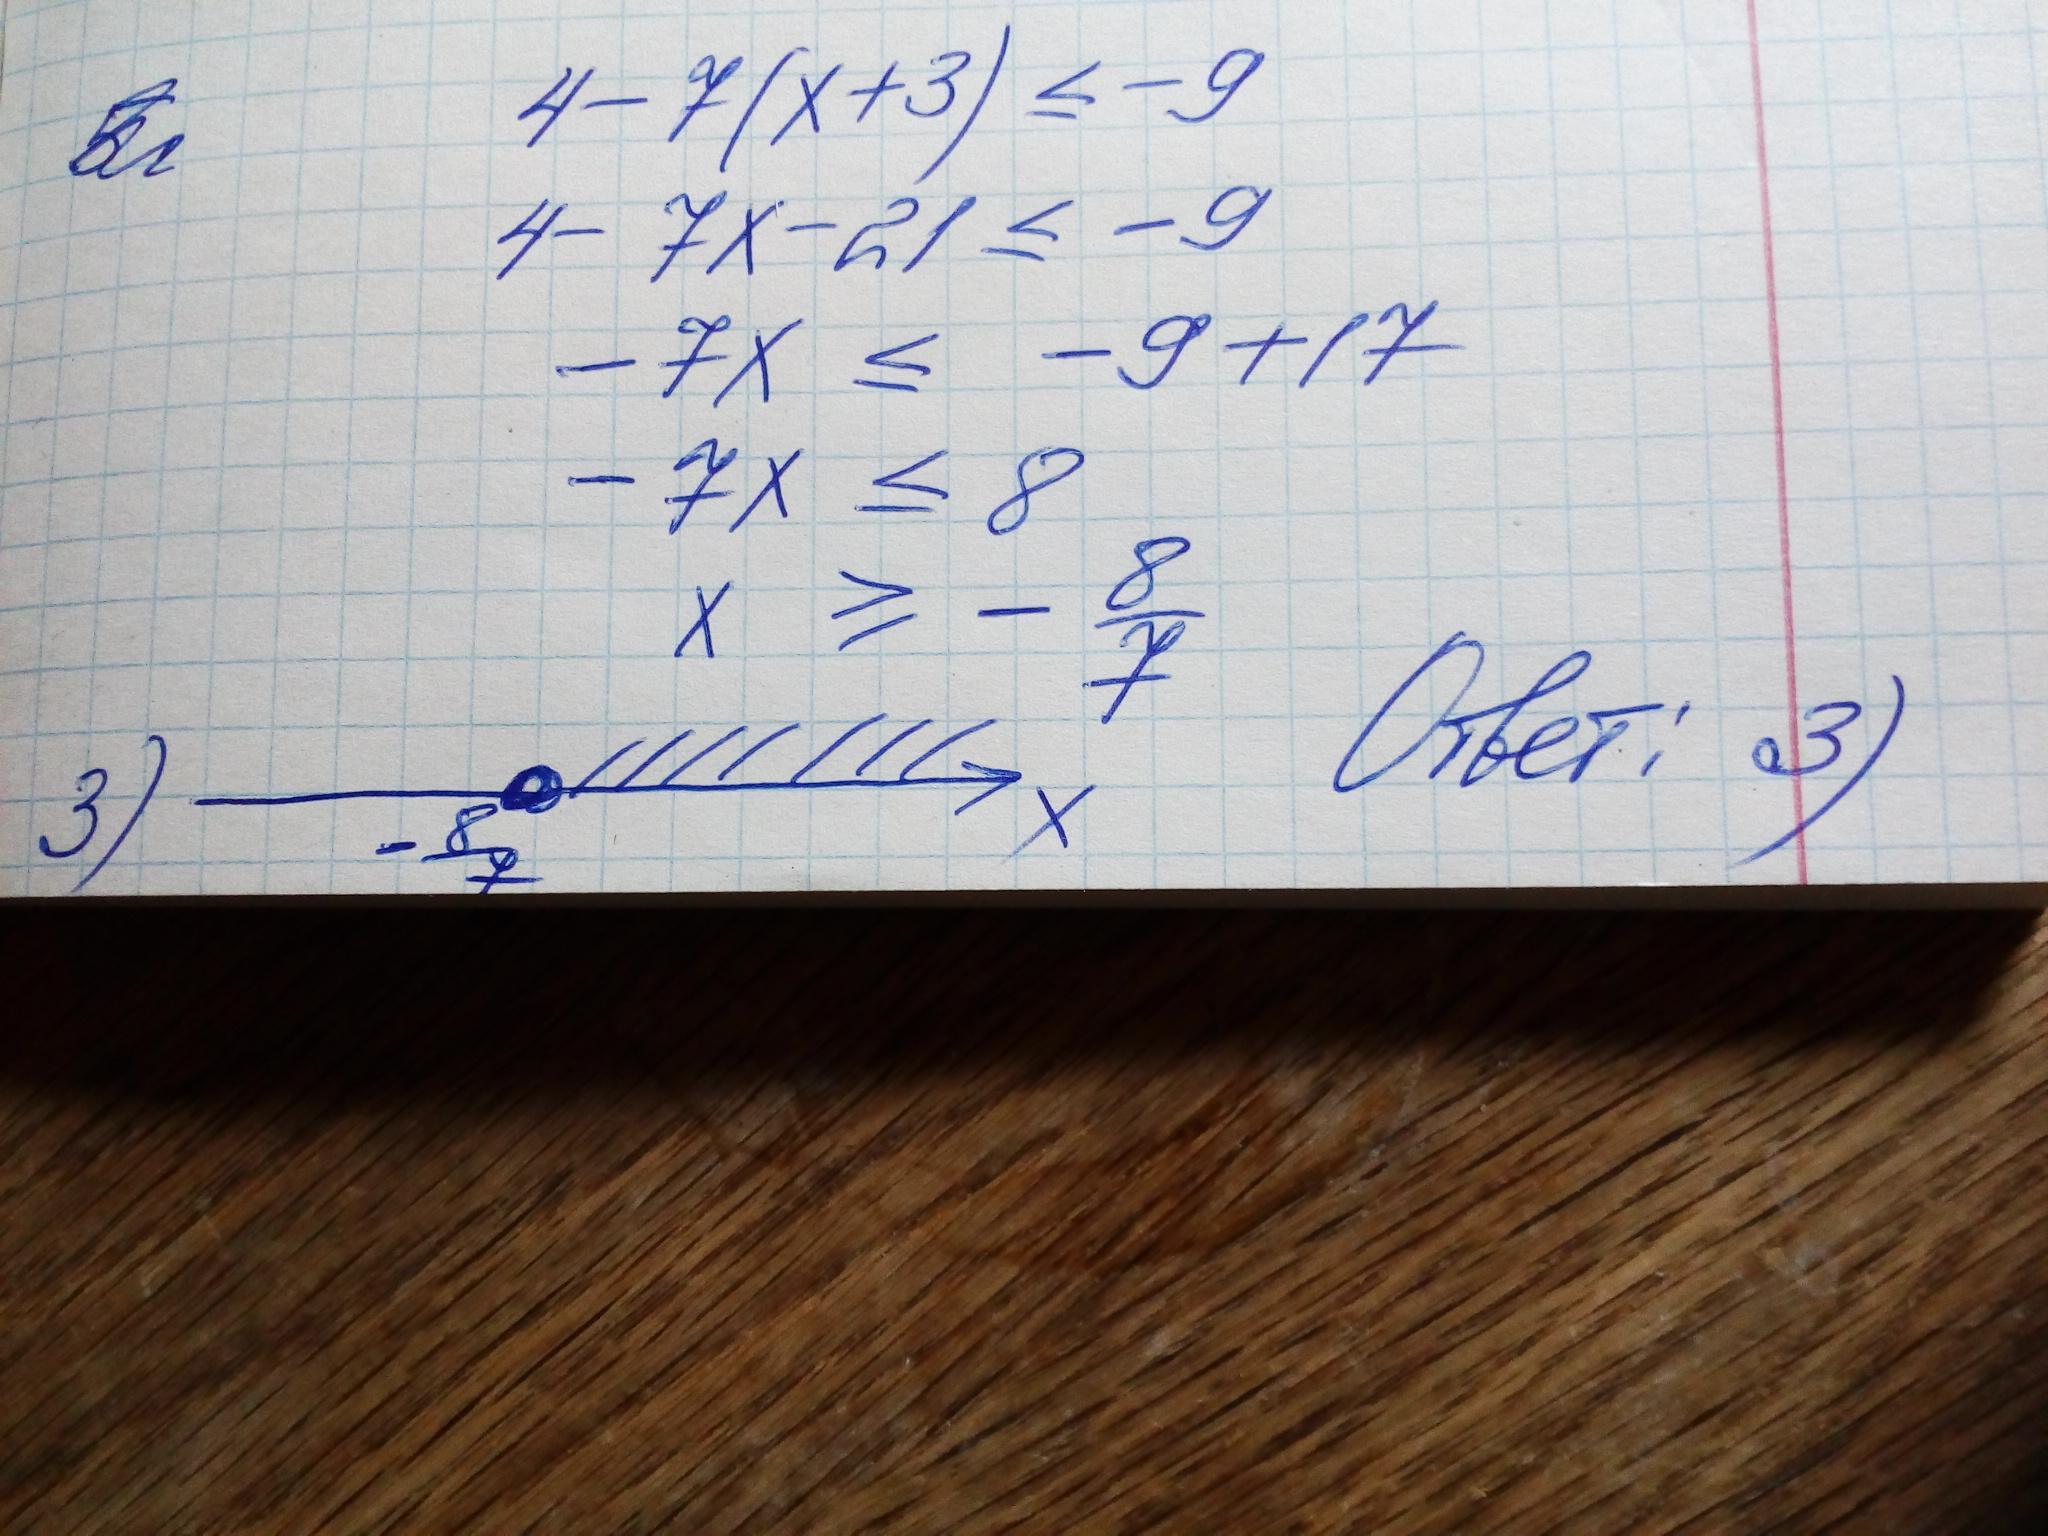 4-7(x+3)≤-9
4-7x-21≤-9
-7x ≤ -9+17
-7x ≤ 8
x ≥ -8/7
3) -8/7 x
Ответ: 3)